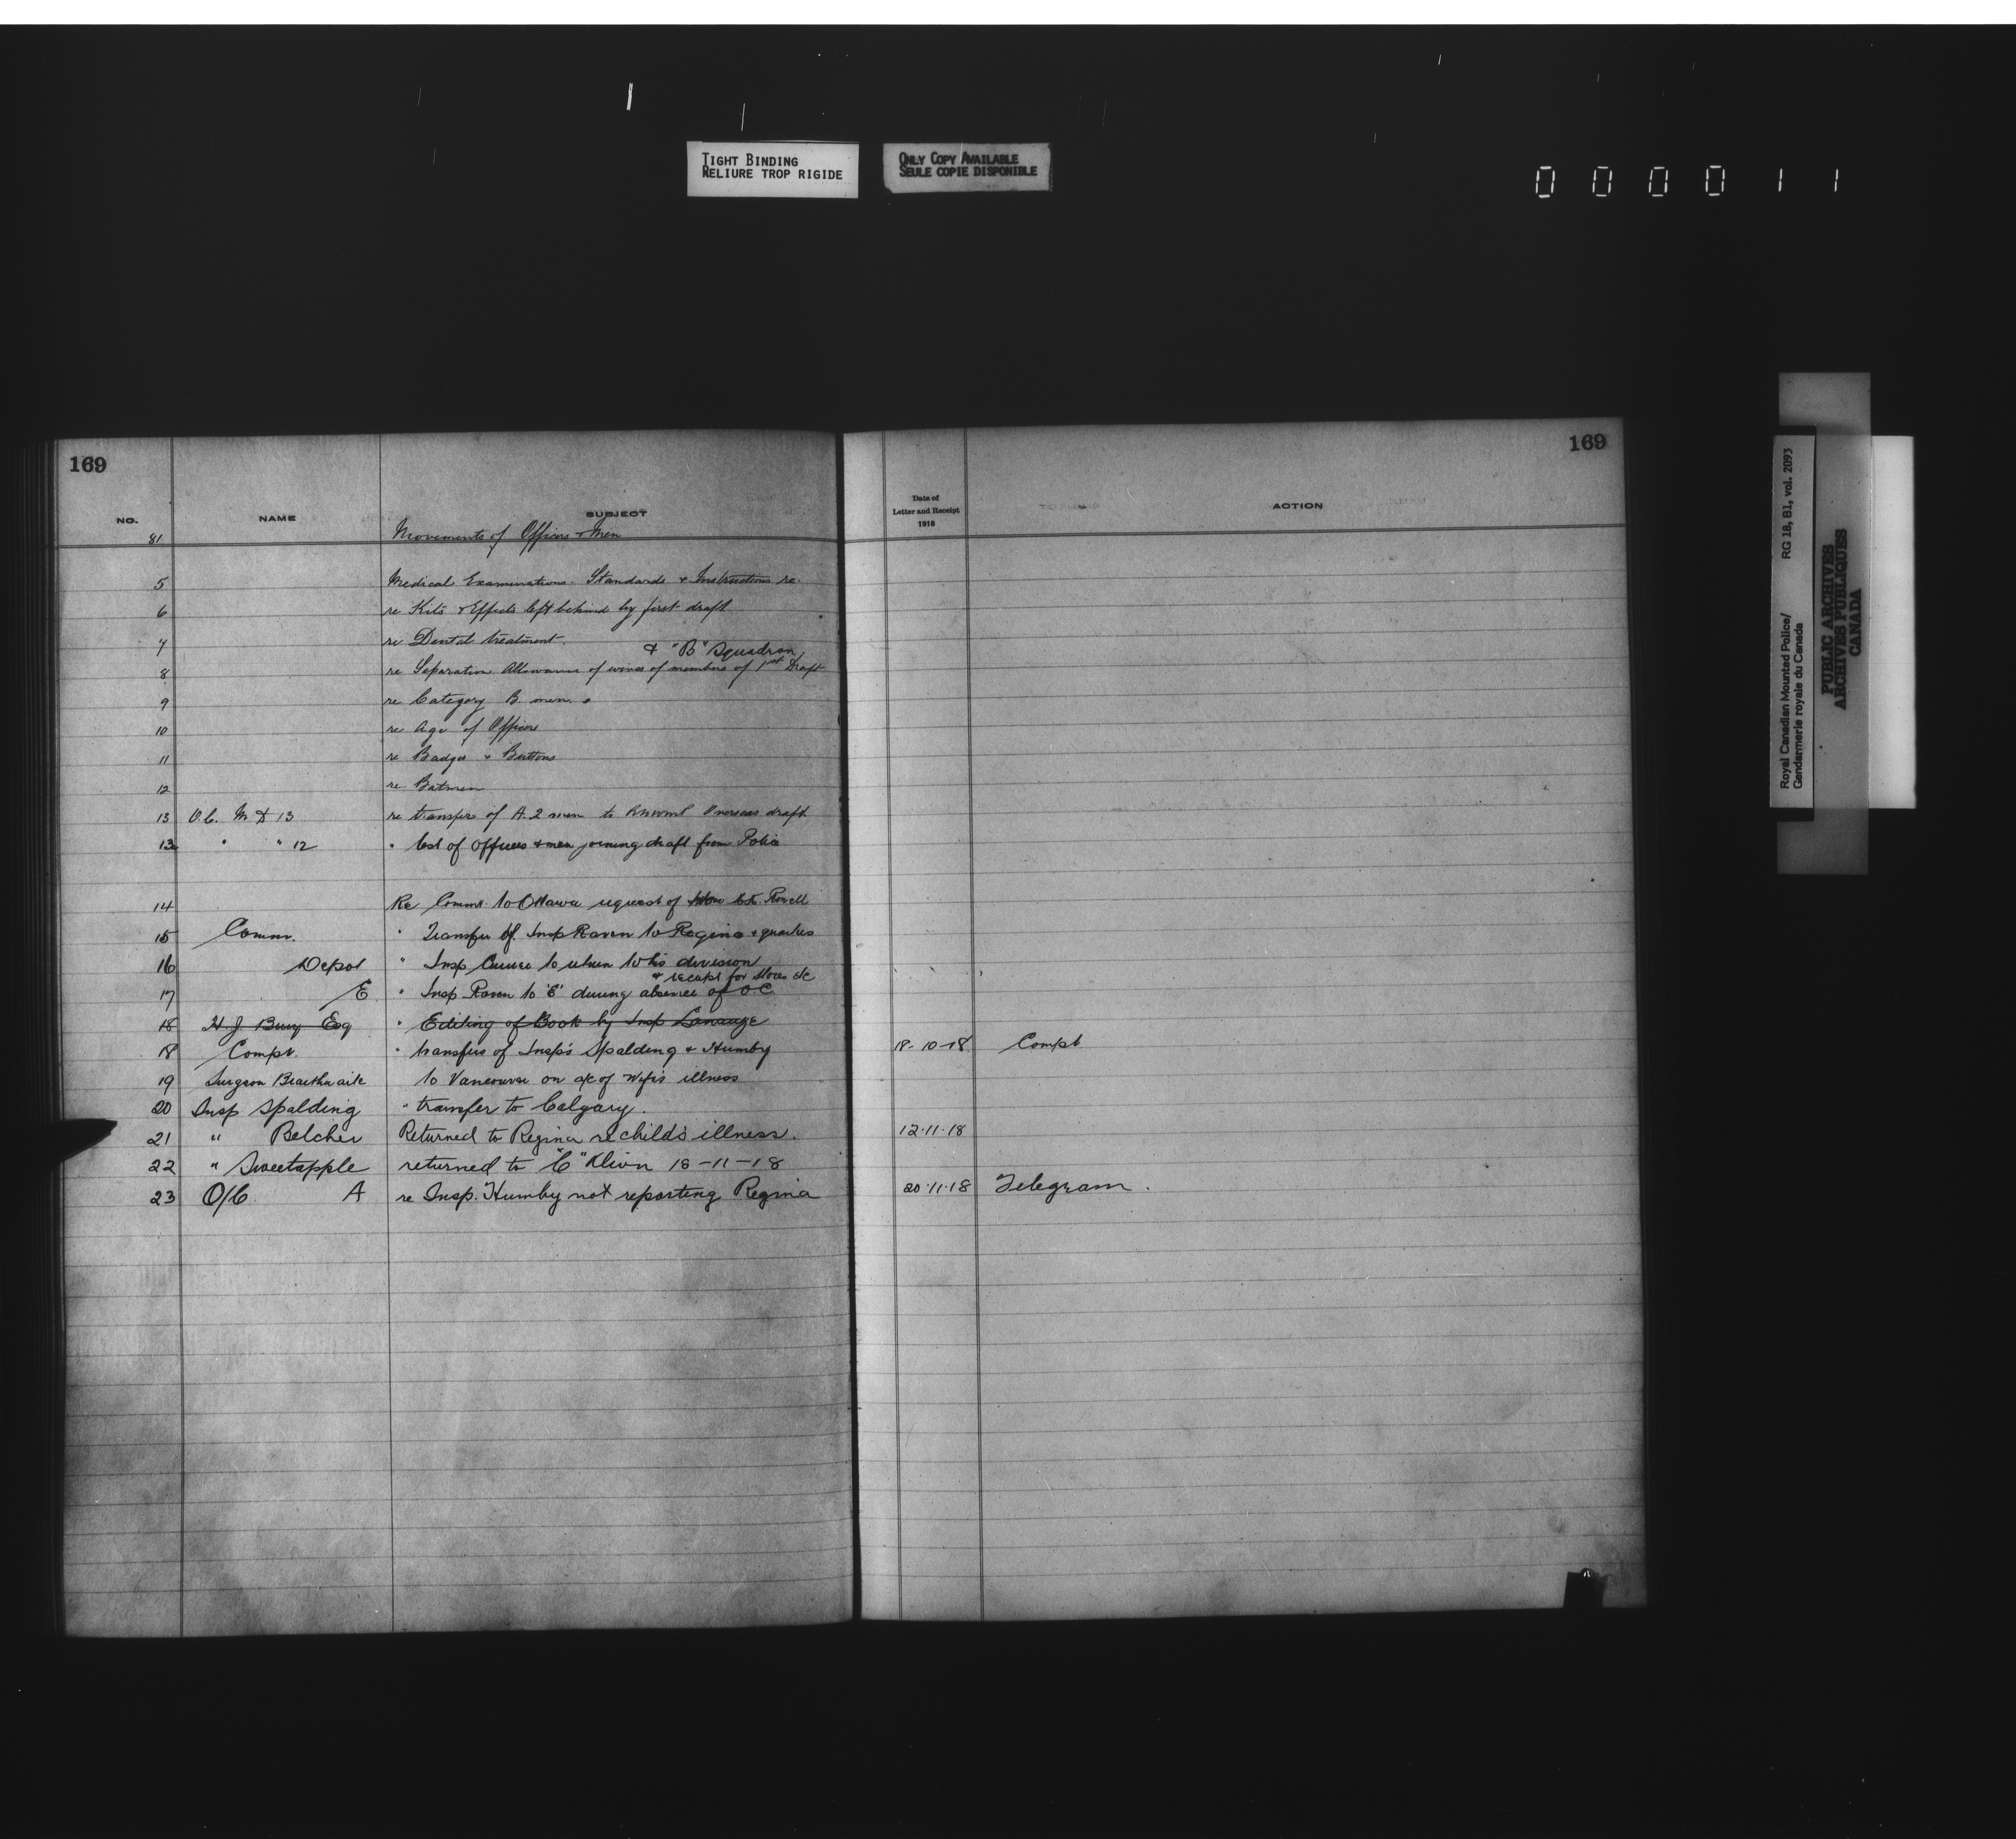 TIGHT BINDING
RELIURE TROP RIGIDE
ONLY COPY AVAILABLE
SEULE COPIE DISPONIBLE
000011
169
NO. NAME SUBJECT
81 Movements of Officers & Men
5 Medical Examinations. Standards & Instructions re.
6 re Kits & Effects left behind by first draft
7 re Dental treatment.
& "B" Squadron
8 re Separation Allowance of wives of members of 1st Draft
9 re Category B. men.
10 re Age of Officers
11 re Badges & Buttons
12 re Batmen
13 O.C. M D 13 re transfers of A.2 men to Overseas draft
13a " " 12 " list of Officers & men joining draft from Police
14 Re Commr. to Ottawa request of Rowell
15 Commr. " Transfer of Insp Raven to Regina & quarters
16 Depot " Insp to return to his division
& receipt for Stores &c
17 E " Insp Raven to "E" during absence of O.C.
18 H J Bury Esq " Editing of Book by Insp
18 Compt. " transfers of Insp's Spalding & Humby
19 Surgeon Braithwaite to Vancouver on a/c of Wife's illness
20 Insp Spalding " transfer to Calgary.
21 " Belcher Returned to Regina re child's illness.
22 " Sweetapple returned to "C" Divn 18-11-18
23 O/C. A re Insp. Humby not reporting Regina
169
Date of
Letter and Receipt
1918
ACTION
18-10-18 Compt
12-11-18
20-11-18 Telegram.
Royal Canadian Mounted Police/
Gendarmerie royale du Canada
RG 18, B1, vol. 2093
PUBLIC ARCHIVES
ARCHIVES PUBLIQUES
CANADA